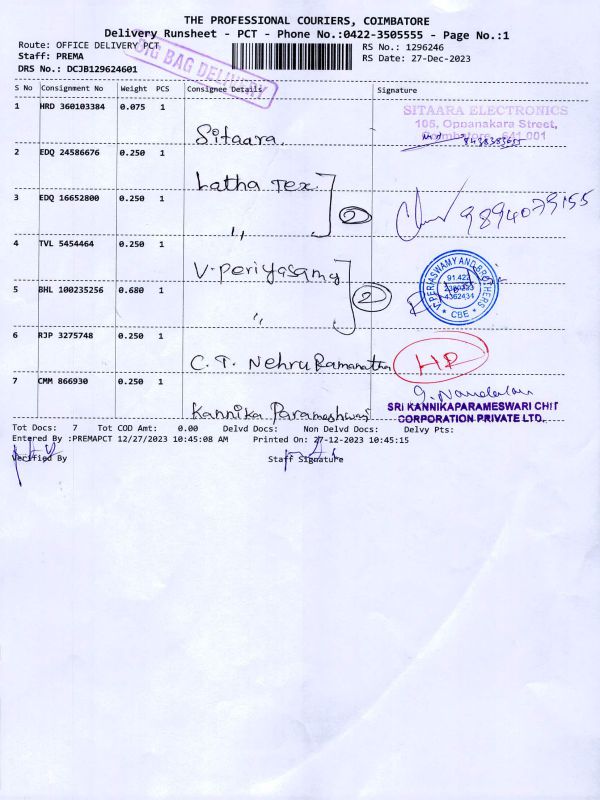 THE PROFESSIONAL COURIERS, COIMBATORE
Delivery Runsheet - PCT - Phone No.:0422-3505555 - Page No.:1
Route: OFFICE DELIVERY PCT
RS No.: 1296246
Staff: PREMA
RS Date: 27-Dec-2023
DRS No.: DCJB129624601
BIG BAG DELIVERY
S No Consignment No Weight PCS Consignee Details Signature
1 HRD 360103384 0.075 1 Sitaara.
SITAARA ELECTRONICS
105, Oppanakara Street,
Coimbatore, 641 001
2 EDQ 24586676 0.250 1 Latha Tex.
3 EDQ 16652800 0.250 1 〃 2
4 TVL 5454464 0.250 1 V. Periyasamy
V.PERIASWAMY AND BROTHERS
CBE
5 BHL 100235256 0.680 1 〃 2
6 RJP 3275748 0.250 1 C. T. Nehru Ramanathan
7 CMM 866930 0.250 1 Kannika Parameshwari
SRI KANNIKAPARAMESWARI CHIT
CORPORATION PRIVATE LTD.,
Tot Docs: 7 Tot COD Amt: 0.00 Delvd Docs: Non Delvd Docs: Delvy Pts:
Entered By :PREMAPCT 12/27/2023 10:45:08 AM Printed On: 27-12-2023 10:45:15
Verified By Staff Signature